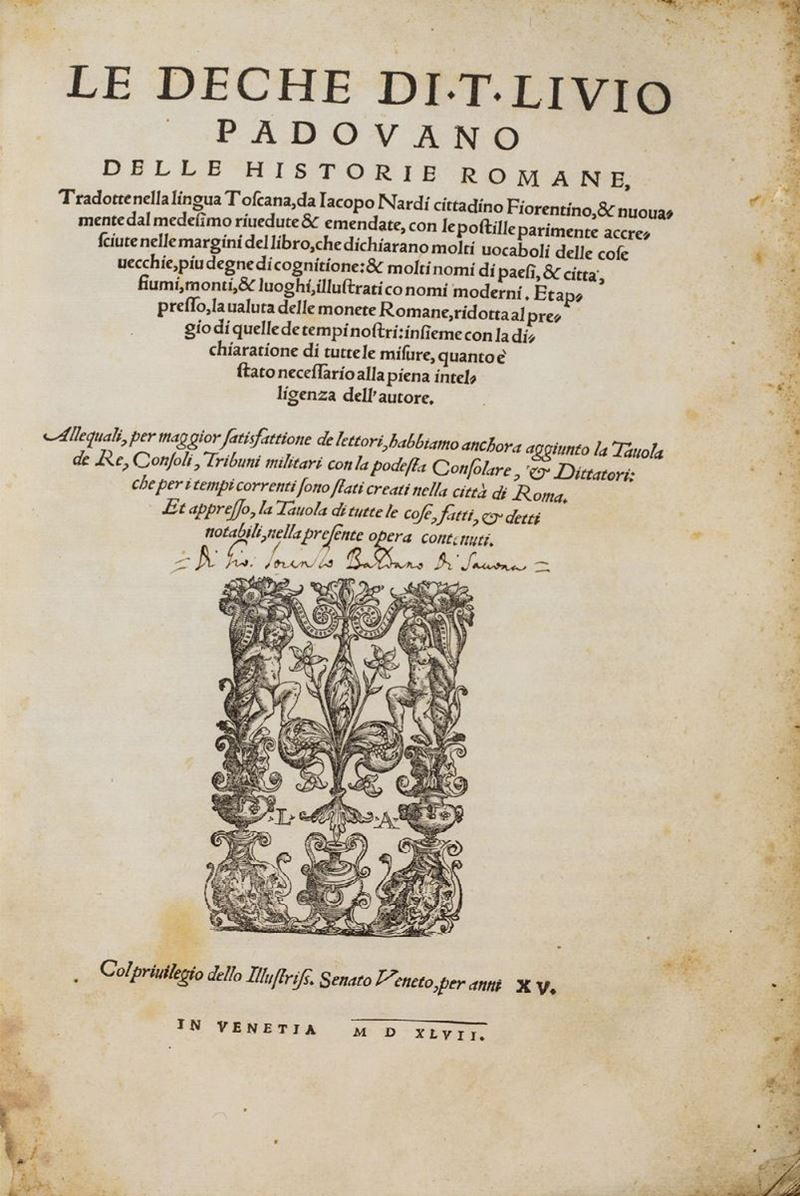 LE DECHE DI·T·LIVIO
PADOVANO
DELLE HISTORIE ROMANE,
Tradotte nella lingua Toſcana,da Iacopo Nardi cittadino Fiorentino,& nuoua⸗
mente dal medeſimo riuedute & emendate, con le poſtille parimente accre⸗
ſciute nelle margini del libro,che dichiarano molti uocaboli delle coſe
uecchie,piu degne di cognitione:& molti nomi di paeſi, & citta,
fiumi,monti,& luoghi,illuſtrati co nomi moderni. Et ap⸗
preſſo,la ualuta delle monete Romane,ridotta al pre⸗
gio di quelle de tempi noſtri:inſieme con la di⸗
chiaratione di tutte le miſure, quanto è
ſtato neceſſario alla piena intel⸗
ligenza dell'autore.
Allequali, per maggior ſatisfattione de lettori,habbiamo anchora aggiunto la Tauola
de Re, Conſoli, Tribuni militari con la podeſta Conſolare, & Dittatori:
che per i tempi correnti ſono ſtati creati nella città di Roma.
Et appreſſo, la Tauola di tutte le coſe, fatti, & detti
notabili,nella preſente opera contenuti.
= Di Gio. Di Sauona =
·L· ·A·
Col priuilegio dello Illuſtriſſ. Senato Veneto,per anni XV.
IN VENETIA M D XLVII.